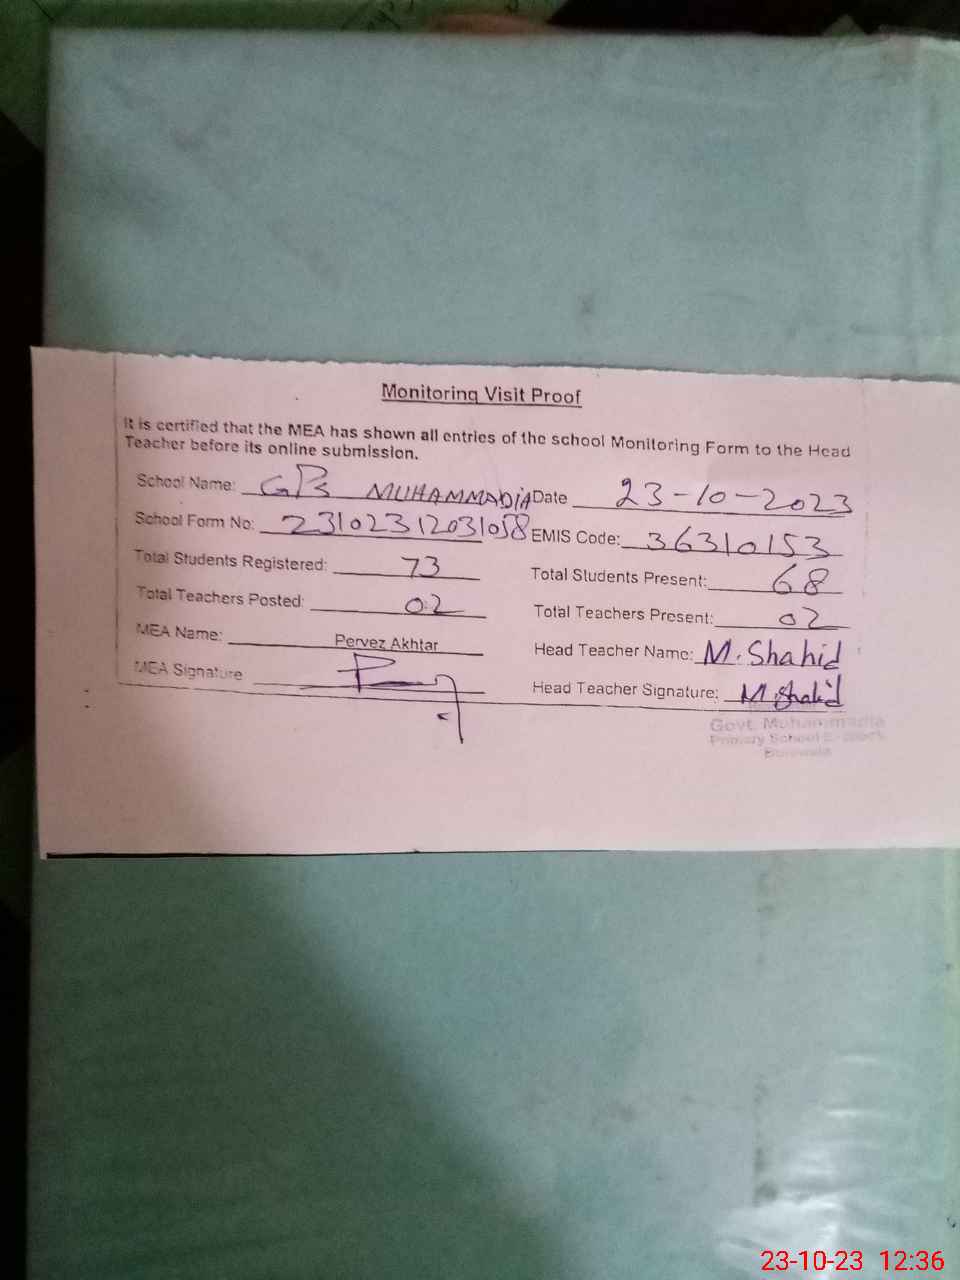 Monitoring Visit Proof
It is certified that the MEA has shown all entries of the school Monitoring Form to the Head
Teacher before its online submission.
School Name: GPS MUHAMMADIA Date 23-10-2023
School Form No: 23102312031058 EMIS Code: 36310153
Total Students Registered: 73 Total Students Present: 68
Total Teachers Posted: 02 Total Teachers Present: 02
MEA Name: Pervez Akhtar Head Teacher Name: M. Shahid
MEA Signature Head Teacher Signature: M. Shahid
Govt. Muhammadia
Primary School
Burewala
23-10-23 12:36